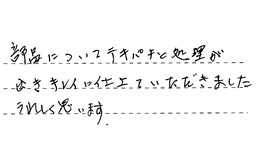 部品についてテキパキと処理が
でききれいに仕上ていただきました
うれしく思います.